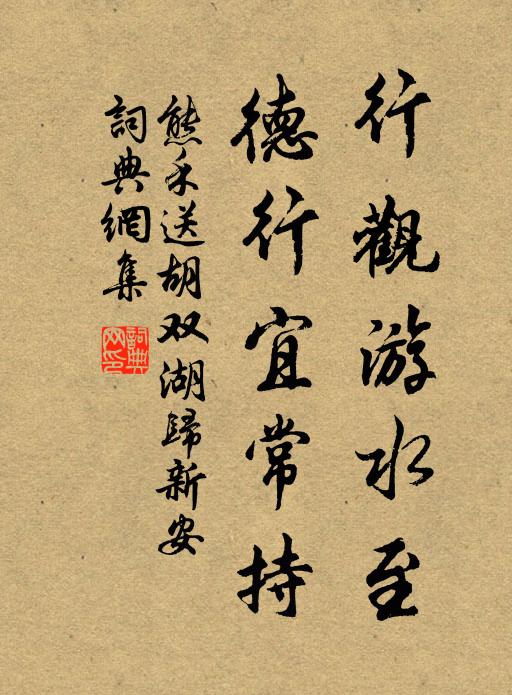 行觀游水至
德行宜常持
熊禾送胡双湖歸新安
詞典網集
詞典网印